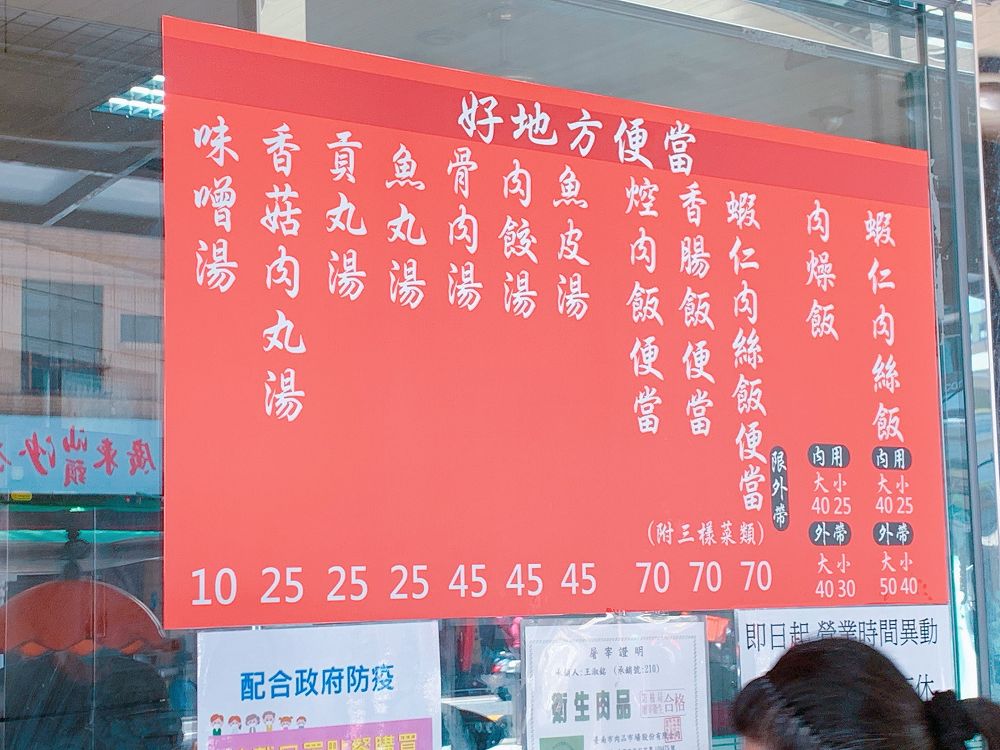 好地方便當
蝦仁肉絲飯
內用
大 小
40 25
外帶
大 小
50 40
肉燥飯
內用
大 小
40 25
外帶
大 小
40 30
限外帶
蝦仁肉絲飯便當
70
香腸飯便當
70
焢肉飯便當
70
(附三樣菜類)
魚皮湯
45
肉餃湯
45
骨肉湯
45
魚丸湯
25
貢丸湯
25
香菇肉丸湯
25
味噌湯
10
廣東汕頭沙
配合政府防疫
屠宰證明
承銷人:王淑銘 (承銷號:210)
衛生肉品
合格
臺南市肉品市場股份有限公司
即日起 營業時間異動
休